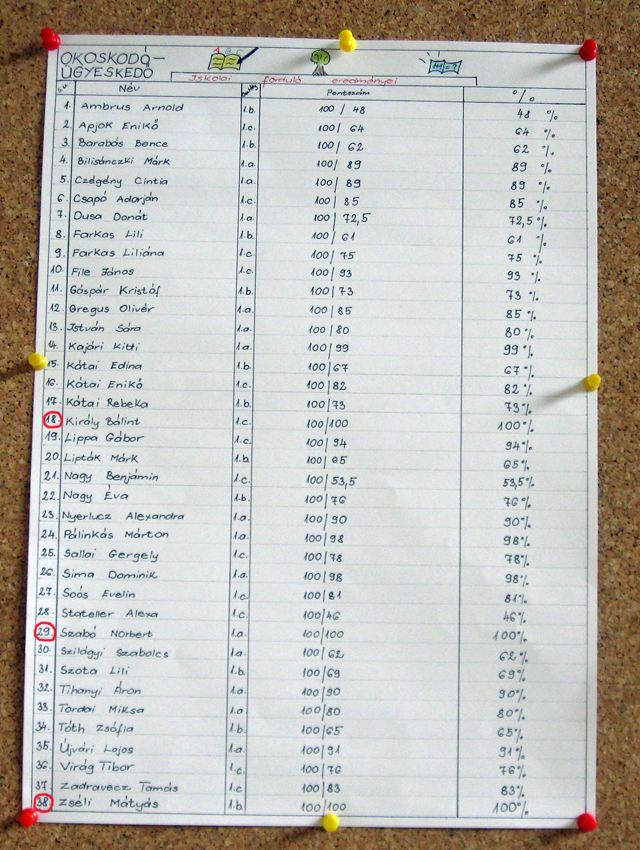 OKOSKODÓ-
ÜGYESKEDŐ
A B C
Iskolai forduló eredményei
Név Pontszám %
1. Ambrus Arnold 1.b. 100 / 48 48 %
2. Apjok Enikő 1.c. 100 / 64 64 %
3. Barabás Bence 1.b. 100 / 62 62 %
4. Bilisánczki Márk 1.a. 100 / 89 89 %
5. Czégény Cintia 1.a. 100 / 89 89 %
6. Csapó Adorján 1.c. 100 / 85 85 %
7. Dusa Donát 1.a. 100 / 72,5 72,5 %
8. Farkas Lili 1.b. 100 / 61 61 %
9. Farkas Liliána 1.c. 100 / 75 75 %
10. File János 1.c. 100 / 93 93 %
11. Gáspár Kristóf 1.b. 100 / 73 73 %
12. Gregus Olivér 1.a. 100 / 85 85 %
13. István Sára 1.a. 100 / 80 80 %
14. Kajári Kitti 1.a. 100 / 99 99 %
15. Kátai Edina 1.b. 100 / 67 67 %
16. Kátai Enikő 1.c. 100 / 82 82 %
17. Kátai Rebeka 1.b. 100 / 73 73 %
18. Király Bálint 1.c. 100 / 100 100 %
19. Lippa Gábor 1.c. 100 / 94 94 %
20. Lipták Márk 1.b. 100 / 65 65 %
21. Nagy Benjámin 1.c. 100 / 53,5 53,5 %
22. Nagy Éva 1.b. 100 / 76 76 %
23. Nyerlucz Alexandra 1.a. 100 / 90 90 %
24. Pálinkás Márton 1.a. 100 / 98 98 %
25. Sallai Gergely 1.c. 100 / 78 78 %
26. Sima Dominik 1.a. 100 / 98 98 %
27. Soós Evelin 1.c. 100 / 81 81 %
28. Stateller Alexa 1.c. 100 / 46 46 %
29. Szabó Norbert 1.a. 100 / 100 100 %
30. Szilágyi Szabolcs 1.a. 100 / 62 62 %
31. Szota Lili 1.b. 100 / 69 69 %
32. Tihanyi Áron 1.a. 100 / 90 90 %
33. Tordai Miksa 1.a. 100 / 80 80 %
34. Tóth Zsófia 1.b. 100 / 65 65 %
35. Újvári Lajos 1.a. 100 / 91 91 %
36. Virág Tibor 1.c. 100 / 76 76 %
37. Zadravecz Tamás 1.c. 100 / 83 83 %
38. Zséli Mátyás 1.b. 100 / 100 100 %